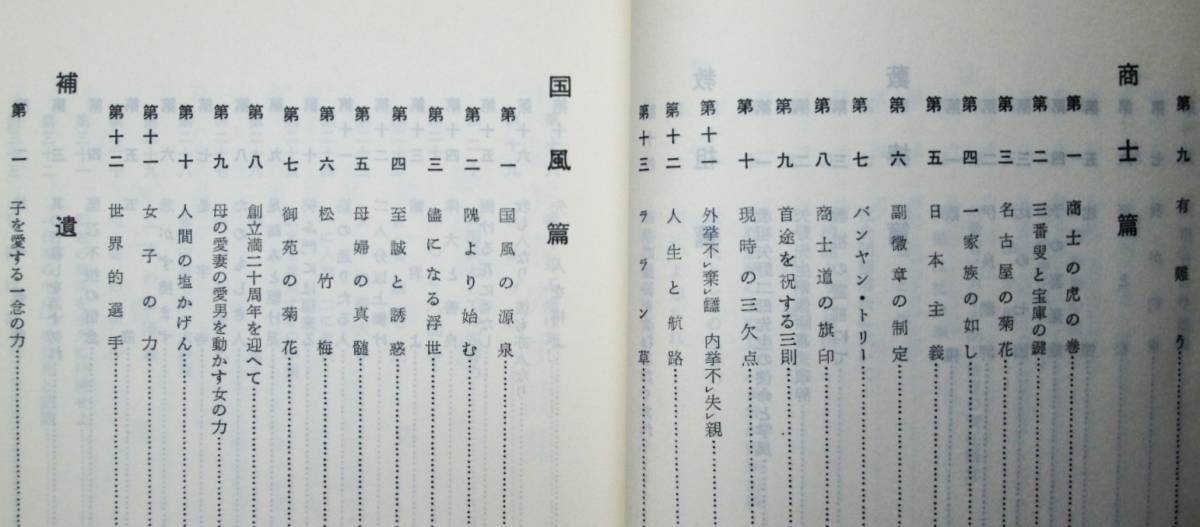 第九 有難う
商士篇
第一 商士の虎の巻
第二 三番叟と宝庫の鍵
第三 名古屋の菊花
第四 一家族の如し
第五 日本主義
第六 副徽章の制定
第七 バンヤン・トリー
第八 商士道の旗印
第九 首途を祝する三則
第十 現時の三欠点
第十一 外挙不レ棄レ讎 内挙不レ失レ親
第十二 人生と航路
第十三 ララン草
国風篇
第一 国風の源泉
第二 隗より始む
第三 儘になる浮世
第四 至誠と誘惑
第五 母婦の真髄
第六 松竹梅
第七 御苑の菊花
第八 創立満二十周年を迎へて
第九 母の愛妻の愛男を動かす女の力
第十 人間の塩かげん
第十一 女子の力
第十二 世界的選手
補遺
第一 子を愛する一念の力